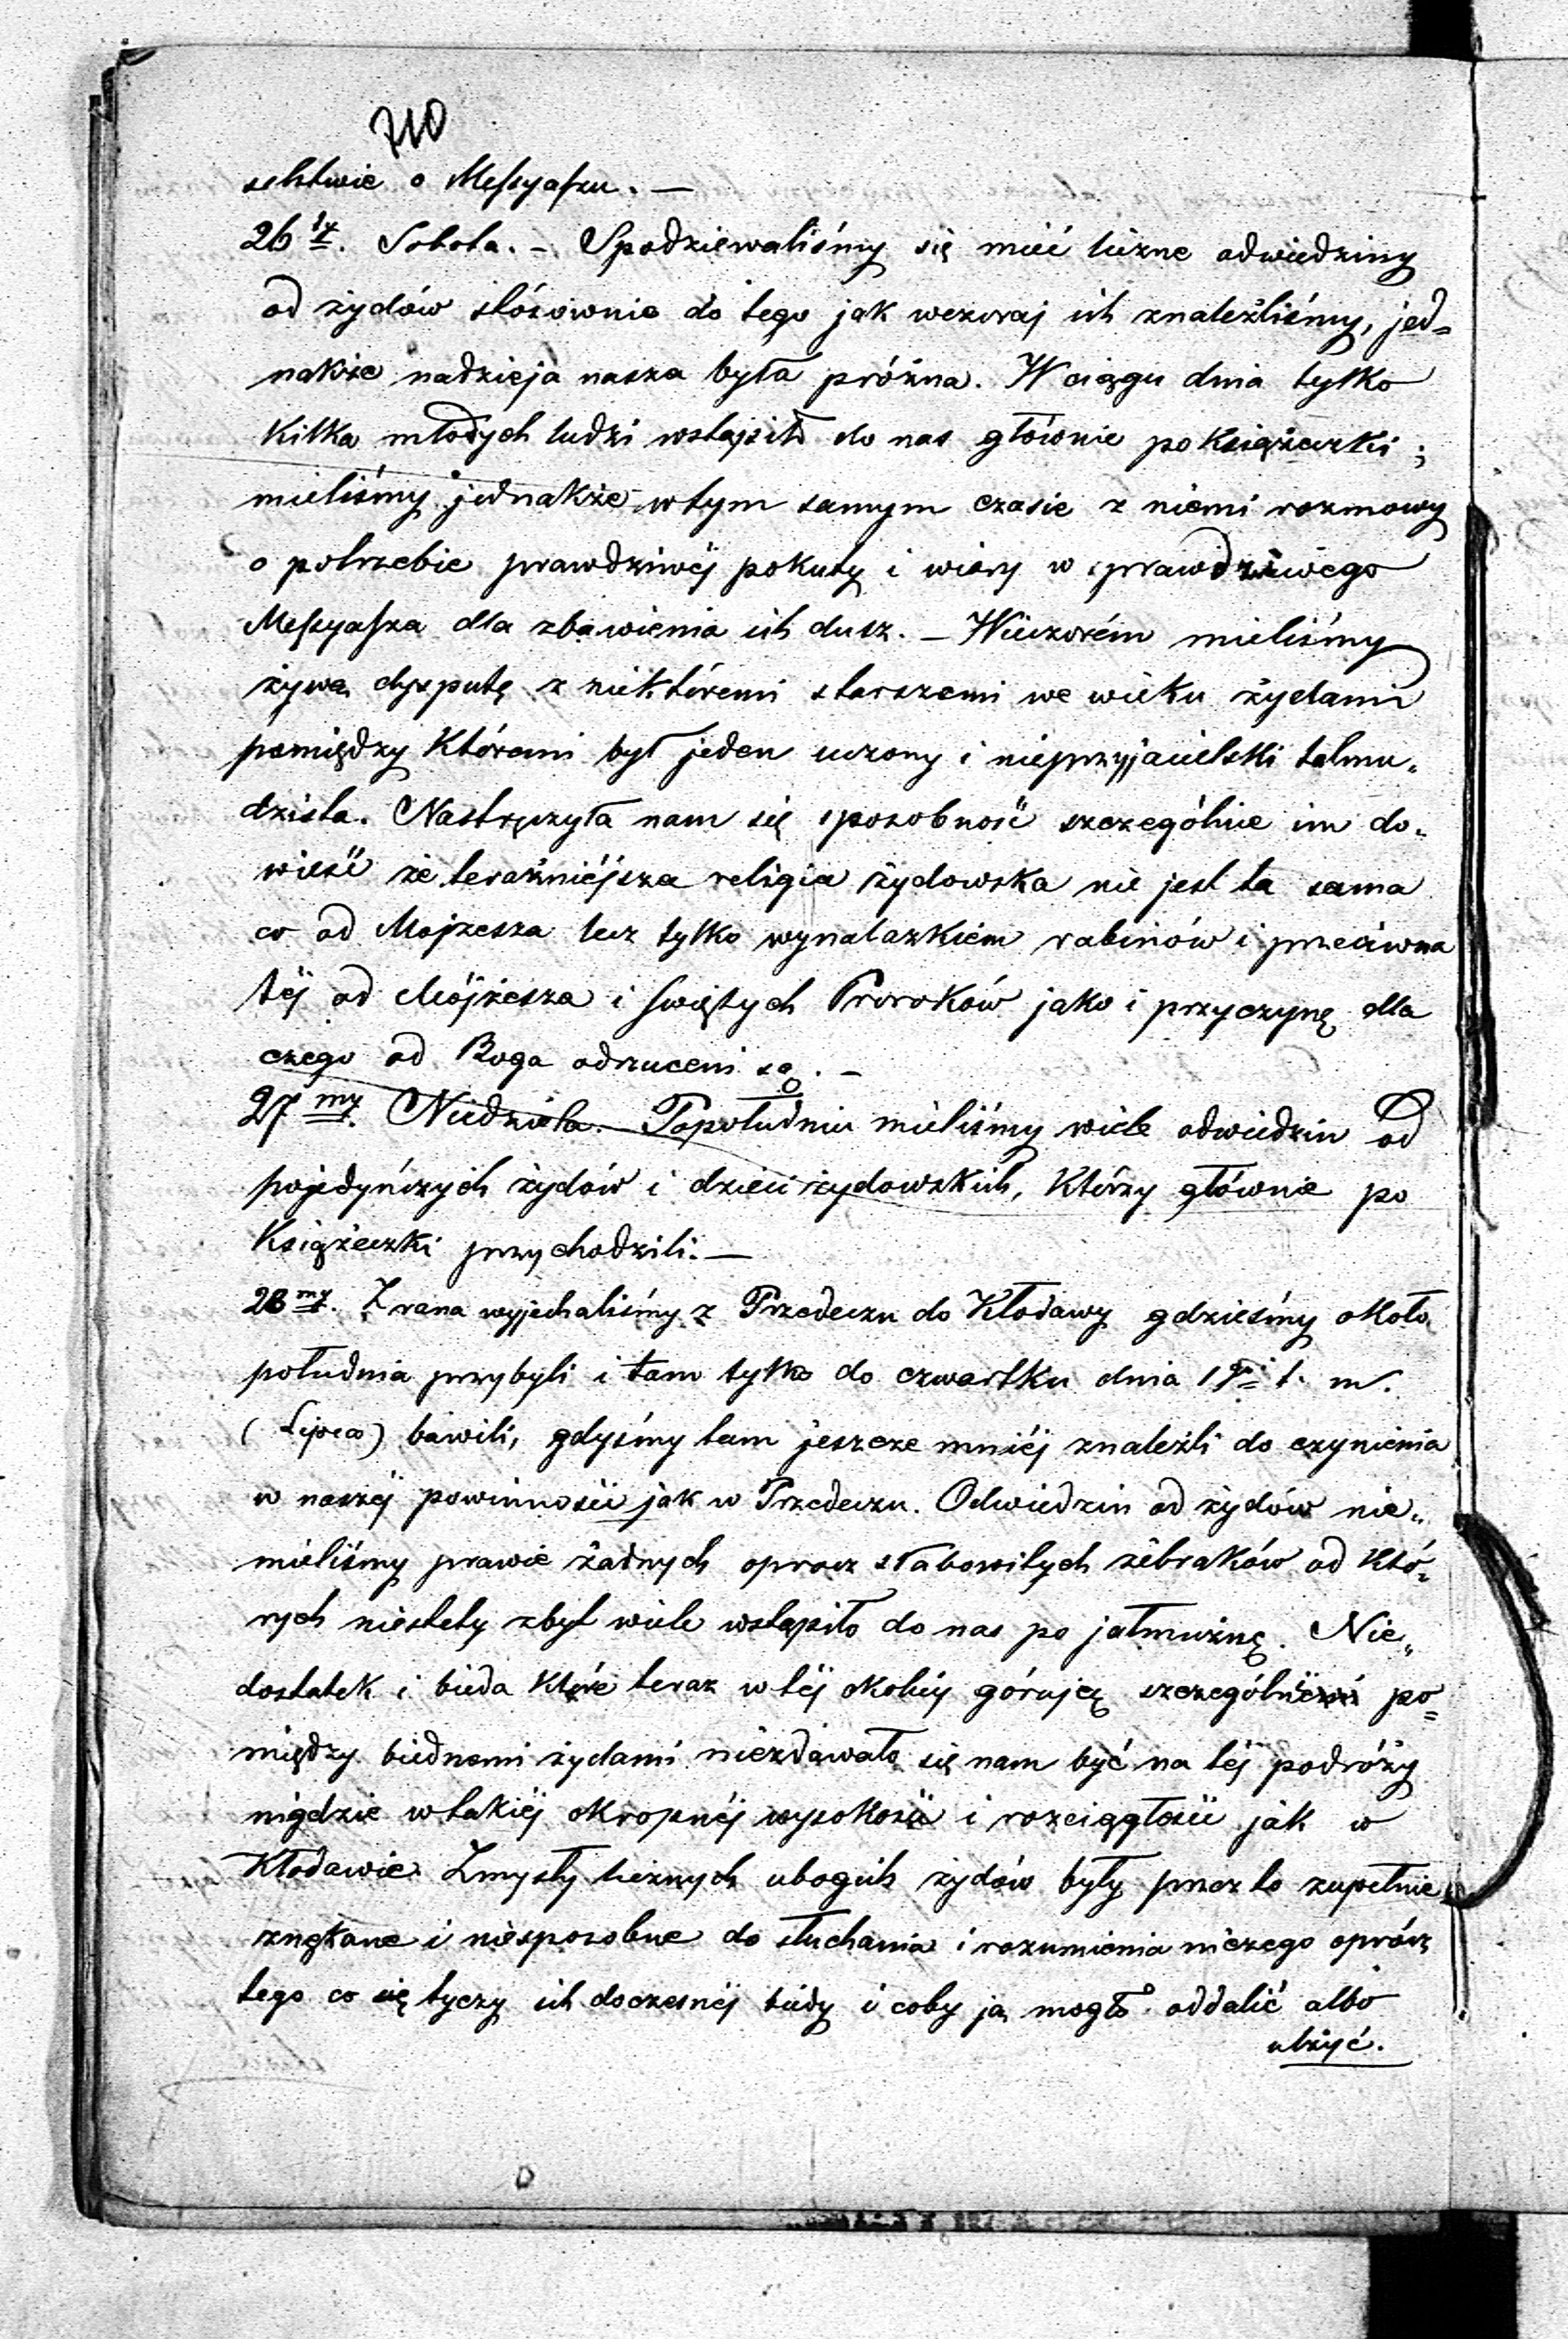 710
sektwie o Meſsyaſzu. —
26 ty. Sobota. – Spodziewaliśmy się mieć liczne odwiedziny
od żydów stósownie do tego jak wczoraj ich znaleźliśmy, jed=
nakże nadzieja nasza była próżna. W ciągu dnia tylko
kilka młodych ludzi wstąpiło do nas głównie po książeczki ;
mieliśmy jednakże w tym samym czasie z niemi rozmowy
o potrzebie prawdziwéj pokuty i wiary w prawdziwego
Meſsyaſza dla zbawienia ich dusz. – Wieczorém mieliśmy
żywą dysputę z niektóremi starszemi we wieku żydami
pomiędzy któremi był jeden uczony i nieprzyjacielski talmu„
dzista. Nastręczyła nam się sposobność szczególnie im do„
wieść że teraźniéjsza religia żydowska nie jest ta sama
co od Mojżesza lecz tylko wynalazkiém rabinów i przeciwna
téj od Mójżesza i świętych Proroków jako i przyczynę dla
czego od Boga odrzuceni są. –
27 my. Niedziela. Popołudniu mieliśmy wiele odwiedzin od
pojedyńczych żydów i dzieci żydowskich, którzy głównie po
książeczki przychodzili. —
28 my. Z rana wyjechaliśmy z Przedeczu do Kłodawy gdzieśmy około
południa przybyli i tam tylko do czwartku dnia 1 go t. m.
( Lipca ) bawili, gdyśmy tam jeszcze mniéj znaleźli do czynienia
w naszéj powinności jak w Przedeczu. Odwiedzin od żydów nie„
mieliśmy prawie żadnych oprocz słabowitych żebraków od któ„
rych niestety zbyt wiele wstąpiło do nas po jałmużnę. Nie„
dostatek i bieda które teraz w téj okolicy górują szczególnie po=
między biednemi żydami niezdawało się nam być na téj podróży
nigdzie w takiéj okropnéj wysokości i rozciągłości jak w
Kłodawie. Zmysły licznych ubogich żydów były przez to zupełnie
znękane i niesposobne do słuchania i rozumienia niczego oprócz
tego co się tyczy ich doczesnéj biedy i coby ją mogło oddalić albo
ulżyć.